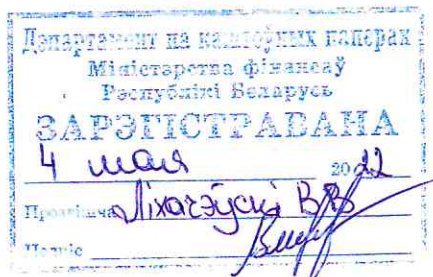 Дэпартамент па каштоўных паперах
Міністэрства фінансаў
Рэспублікі Беларусь
ЗАРЭГІСТРАВАНА
4 мая 2022
Прозвішча Ліхачэўскі В.В
Подпіс